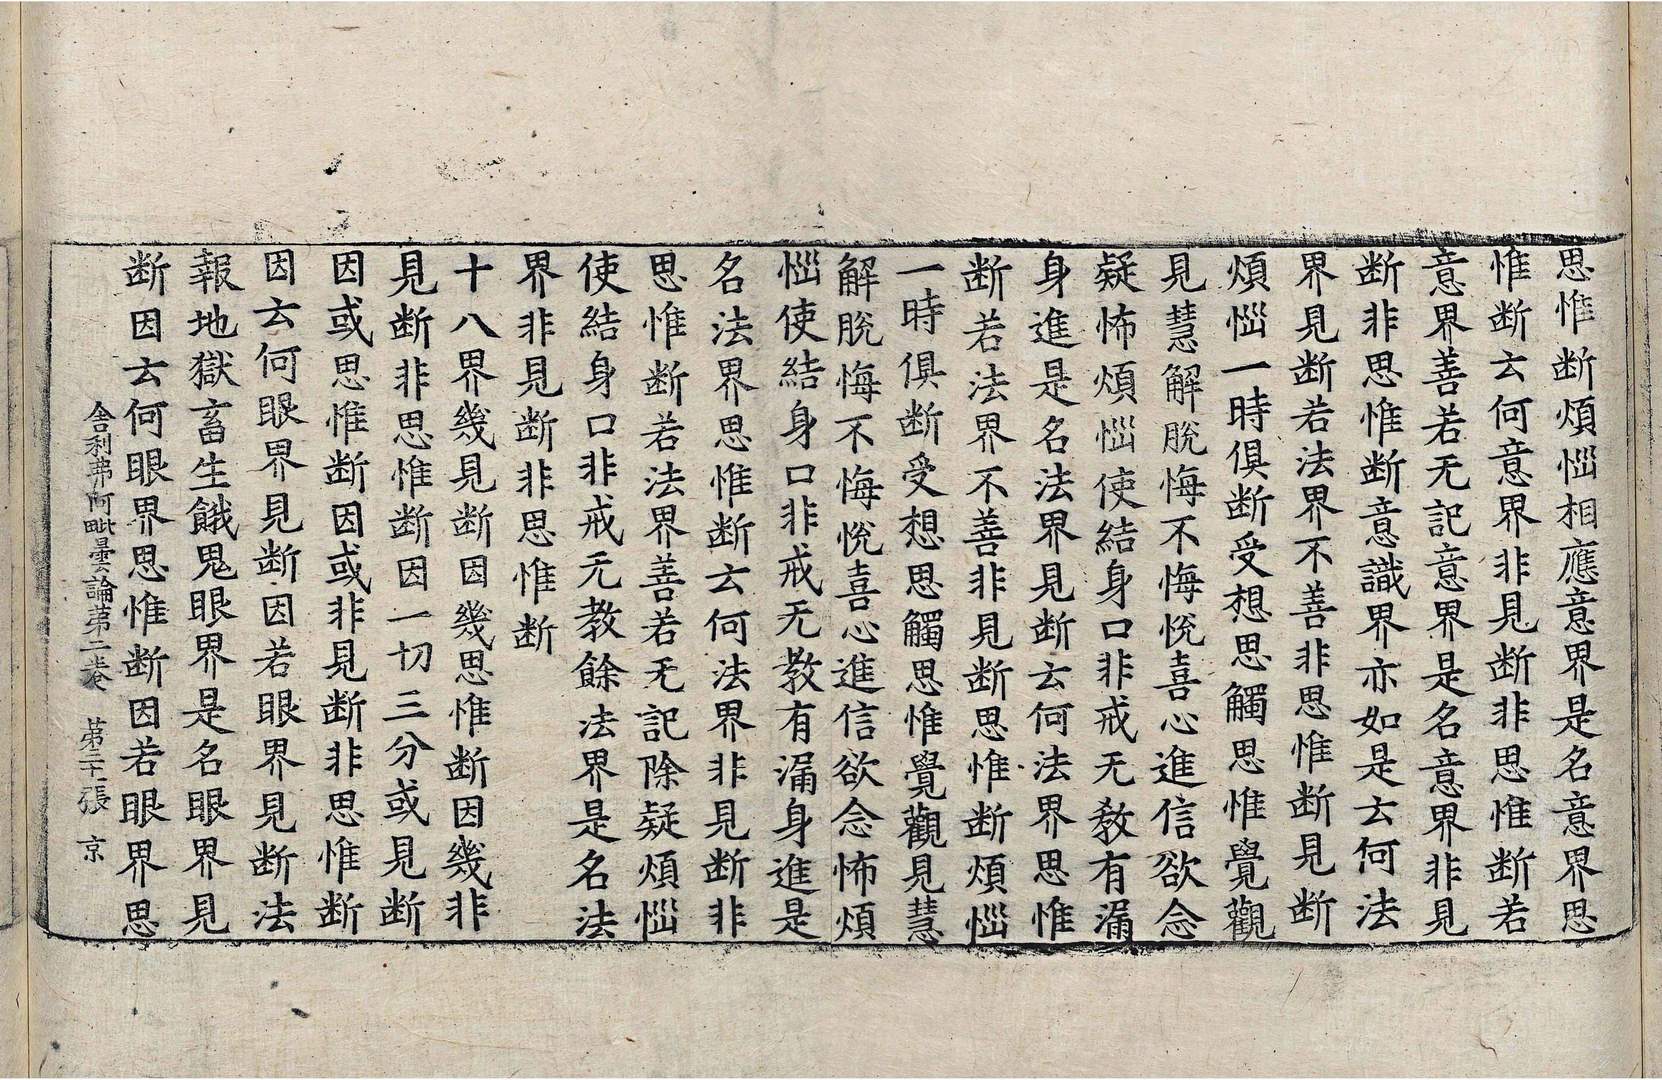 思惟断煩惱相應意界是名意界思
惟断云何意界非見断非思惟断若
意界善若无記意界是名意界非見
断非思惟断意識界亦如是云何法
界見断若法界不善非思惟断見断
煩惱一時俱断受想思觸思惟覺觀
見慧解脫悔不悔悅喜心進信欲念
疑怖煩惱使結身口非戒无教有漏
身進是名法界見断云何法界思惟
断若法界不善非見断思惟断煩惱
一時俱断受想思觸思惟覺觀見慧
解脫悔不悔悅喜心進信欲念怖煩
惱使結身口非戒无教有漏身進是
名法界思惟断云何法界非見断非
思惟断若法界善若无記除疑煩惱
使結身口非戒无教餘法界是名法
界非見断非思惟断
十八界幾見断因幾思惟断因幾非
見断非思惟断因一切三分或見断
因或思惟断因或非見断非思惟断
因云何眼界見断因若眼界見断法
報地獄畜生餓鬼眼界是名眼界見
断因云何眼界思惟断因若眼界思
舍利弗阿毗曇論第二卷 第二十張 京